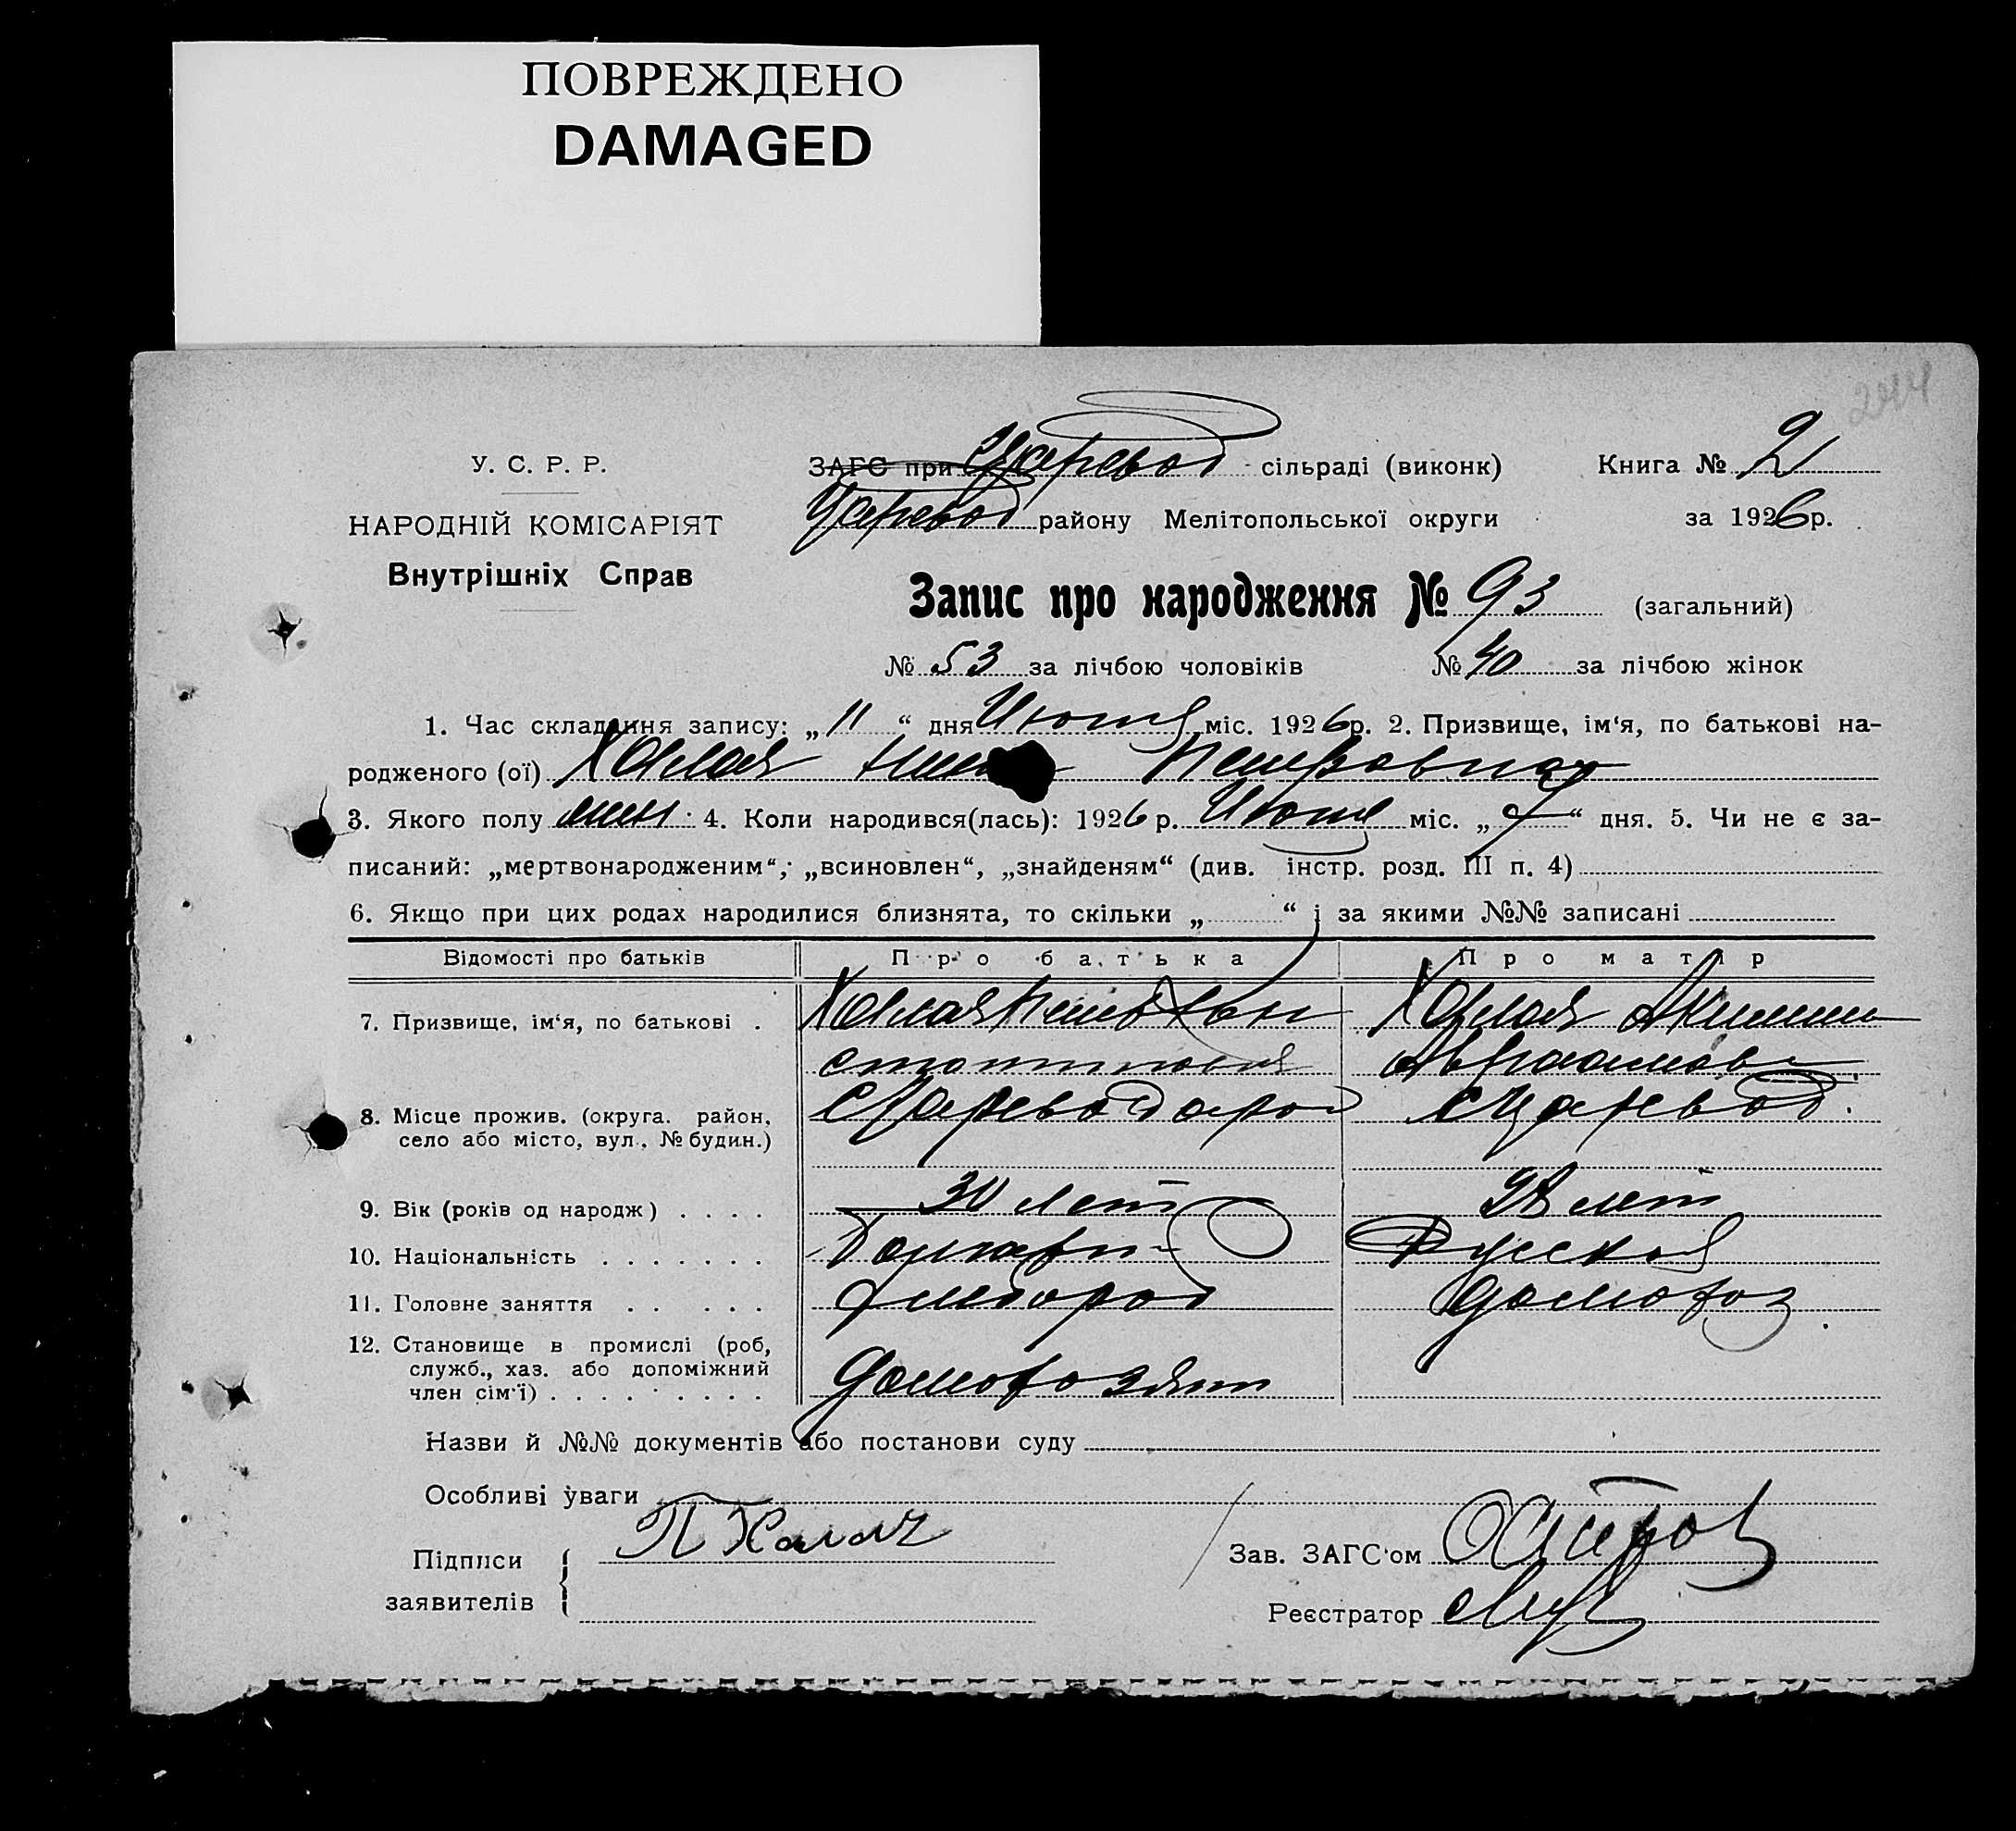 ПОВРЕЖДЕНО
DAMAGED
У. С. Р. Р.
НАРОДНІЙ КОМІСАРІЯТ
Внутрішніх Справ
ЗАГС при Царевод сільраді (виконк) Книга № 2
Царевод району Мелітопольської округи за 1926 р.
Запис про народження № 93 (загальний)
№ 53 за лічбою чоловіків № 40 за лічбою жінок
1. Час складання запису: „11“ дня міс. 1926 р. 2. Призвище, ім‘я, по батькові на-
родженого (ої) Петровна
3. Якого полу жен. 4. Коли народився(лась): 1926 р. міс. „7“ дня. 5. Чи не є за-
писаний: „мертвонародженим“; „всиновлен“, „знайденям“ (див. інстр. розд. III п. 4)
6. Якщо при цих родах народилися близнята, то скільки „ “ і за якими №№ записані
Відомості про батьків Про батька Про матір
7. Призвище, ім‘я, по батькові .
8. Місце прожив. (округа. район, с Цареводаров с Царевод.
село або місто, вул., № будин.)
9. Вік (років од народж) . . . . 30 лет 28 лет
10. Національність . . . . . . . Болгарин Русская
11. Головне заняття . . . . . хлебороб домохоз
12. Становище в промислі (роб,
служб., хаз. або допоміжний
член сім‘ї) . . . . . . . . . домохозяин
Назви й №№ документів або постанови суду
Особливі уваги
Підписи П Халач Зав. ЗАГС‘ом
заявителів Реєстратор